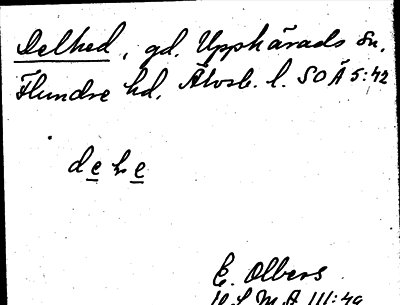 Delhed, gd. Upphärads sn.
Flundre hd. Älvsb. l. SOÄ 5:42
dehe
E. Olbers
III:49